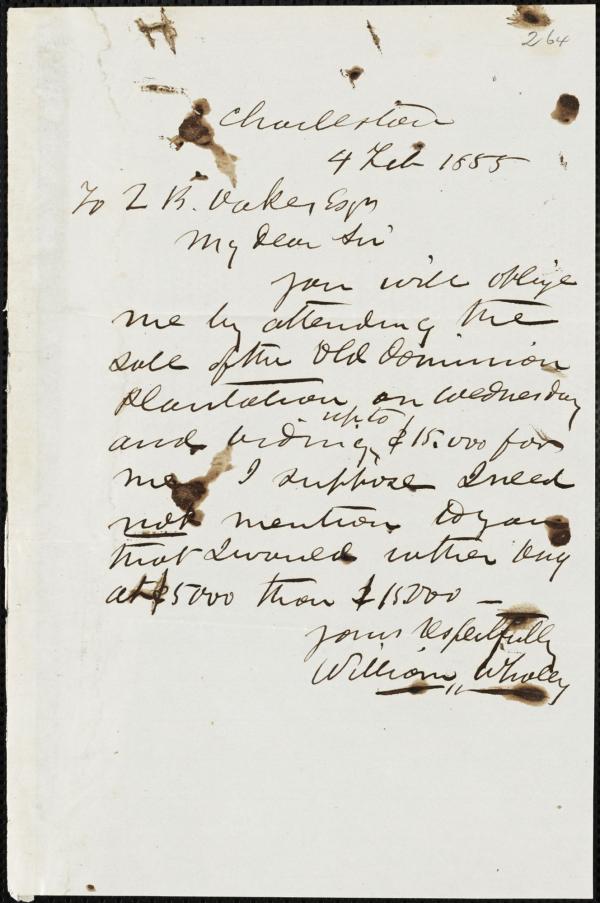 264
Charleston
4 Feb 1855
To Z B. Oakes Esqr
My Dear Sir
you will oblige
me by attending the
sale of the Old Dominion
Plantation on Wednesday
and biding up to $15.000 for
me. I suppose I need
not mention to you
that I would rather buy
at $5000 than $15000 —
yours respectfully
William Whaley